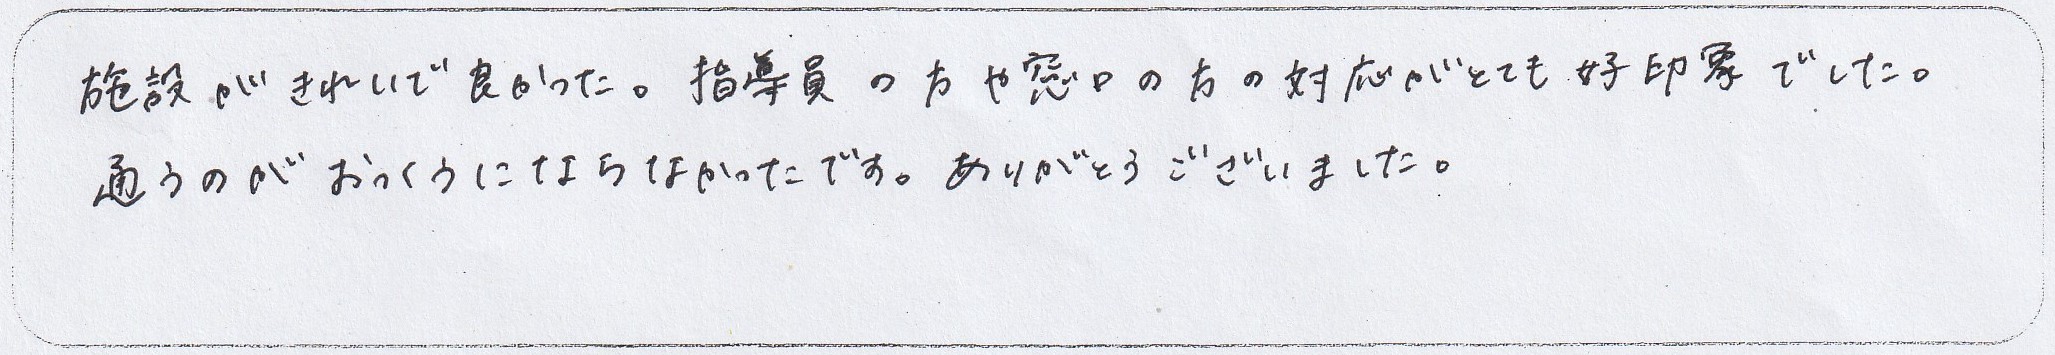 施設がきれいで良かった。指導員の方や窓口の方の対応がとても好印象でした。
通うのがおっくうにならなかったです。ありがとうございました。